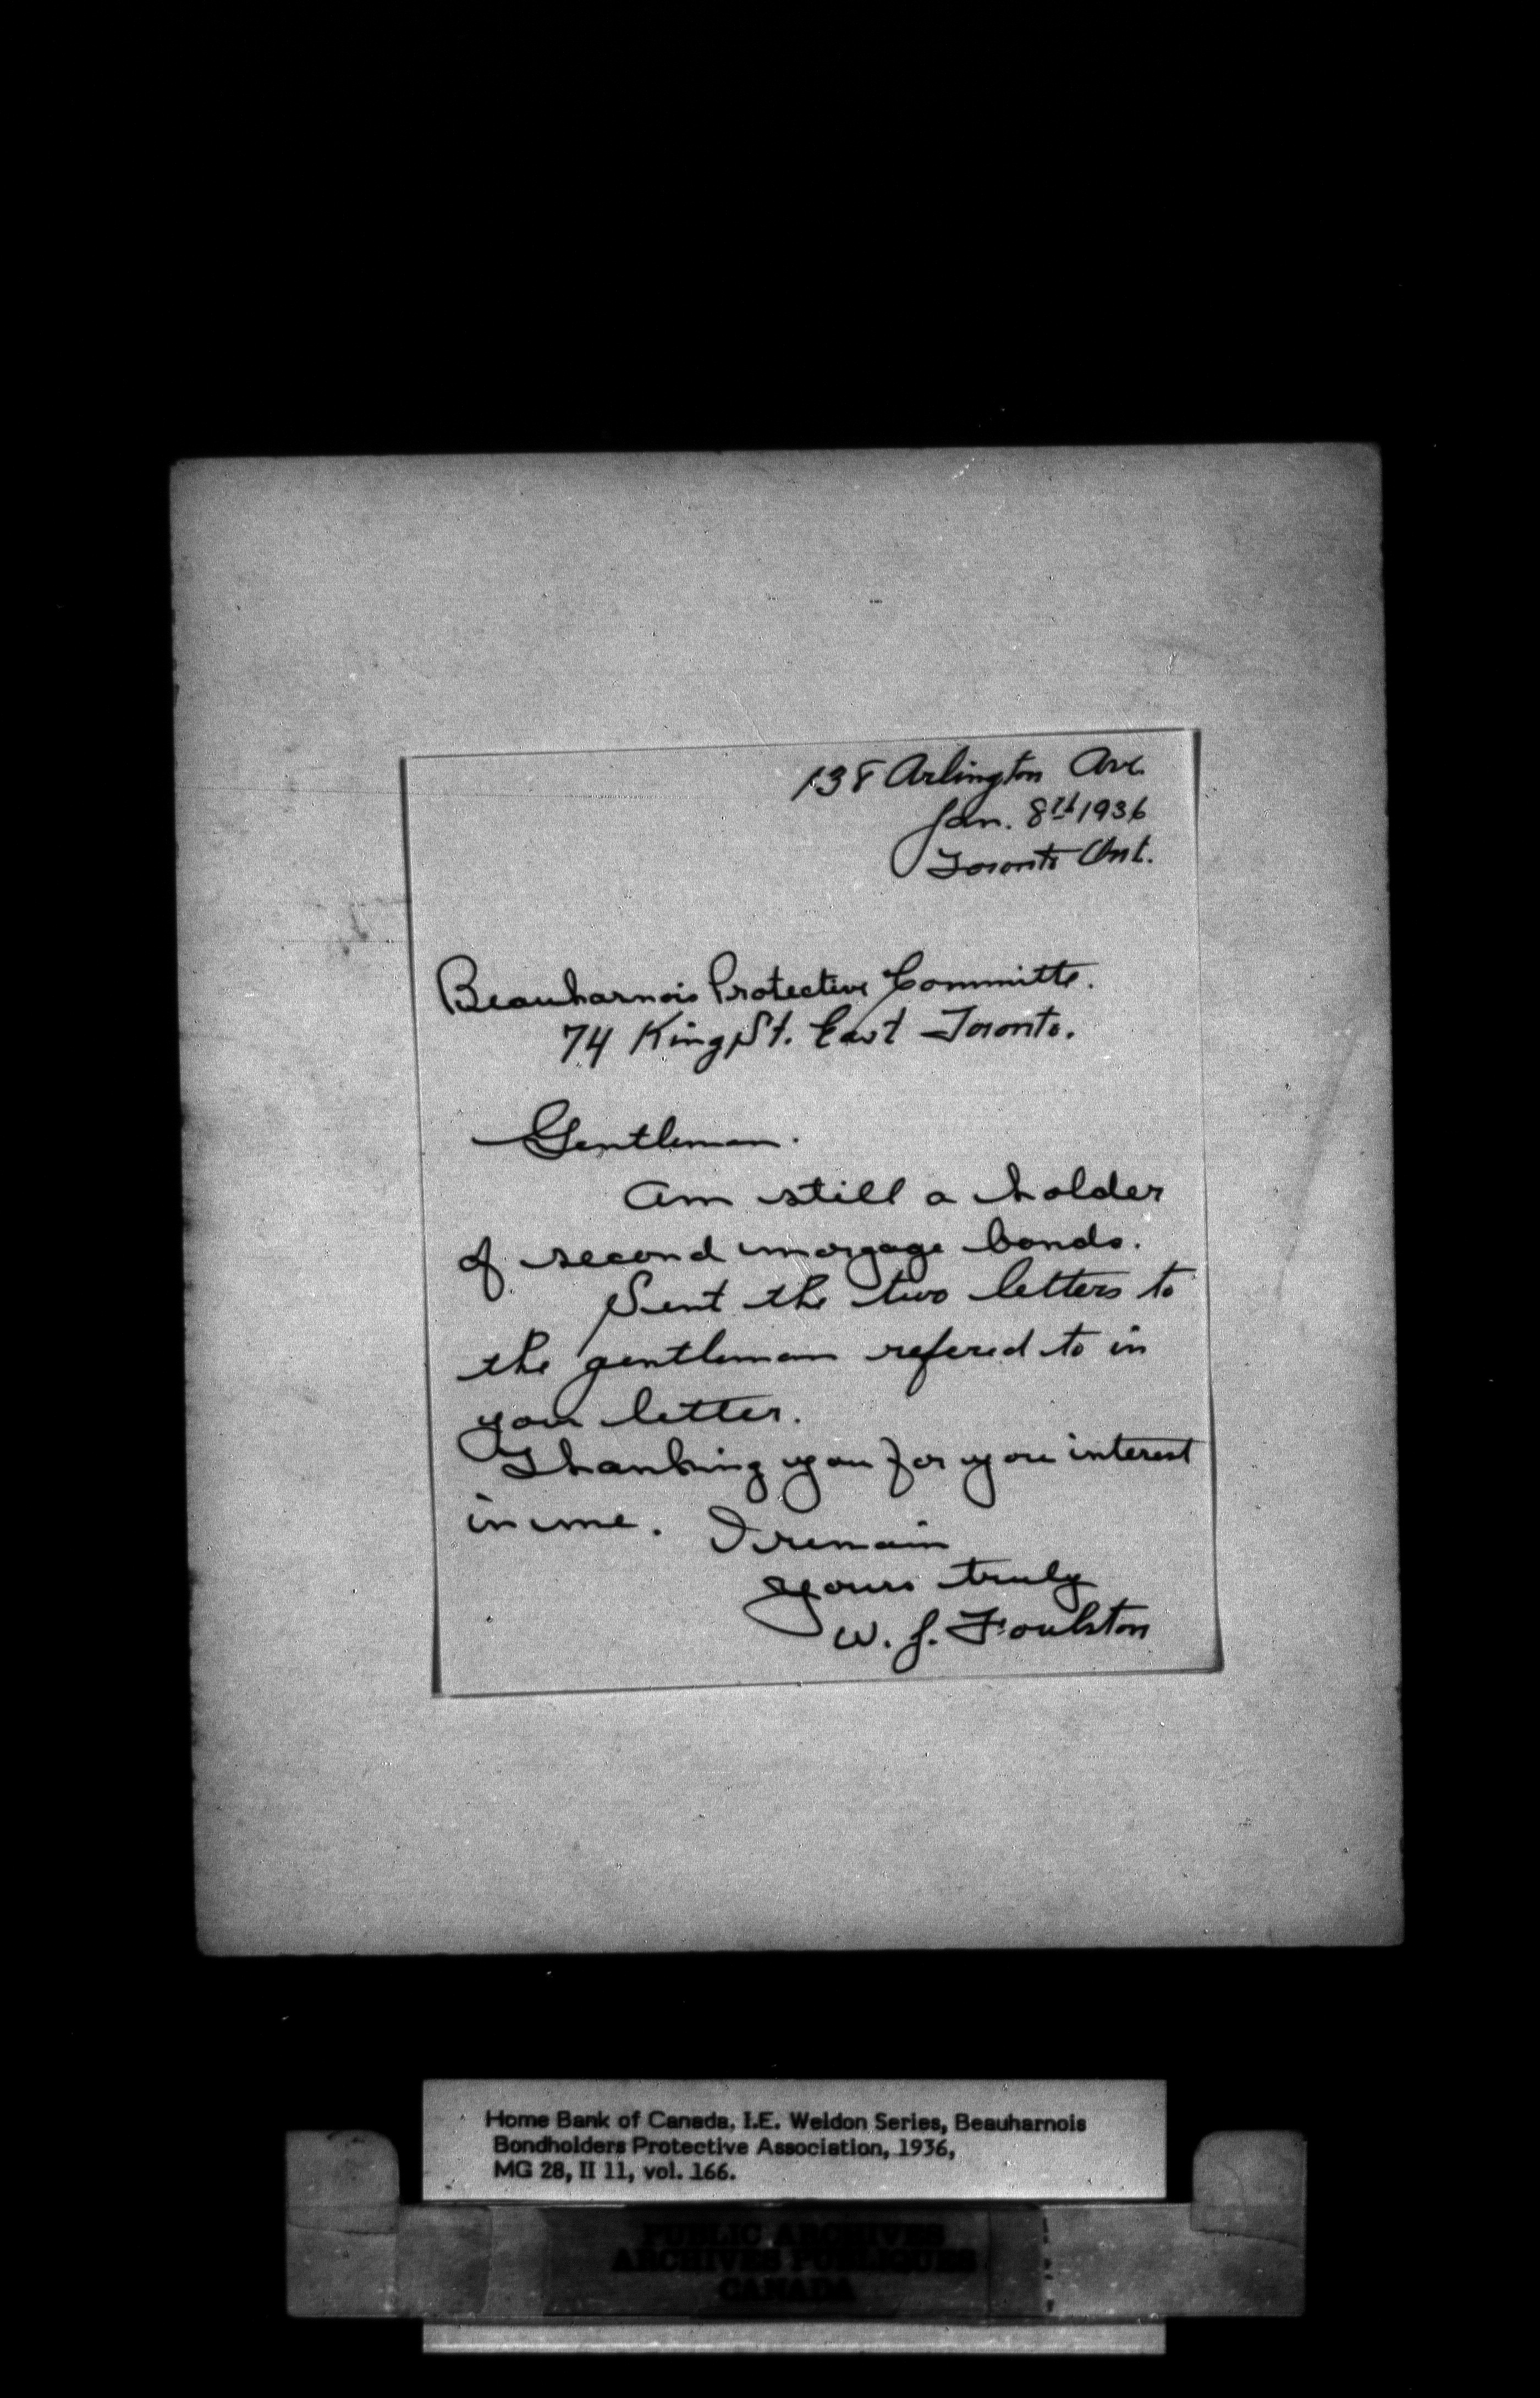 138 Arlington Ave.
Jan. 8th 1936
Toronto Ont.
Beauharnois Protective Committe.
74 King St. East Toronto.
Gentleman.
Am still a holder
of second morgage bonds.
Sent the two letters to
the gentleman refered to in
your letter.
Thanking you for your interest
in me. I remain
yours truly
W. J. Foulston
Home Bank of Canada, I.E. Weldon Series, Beauharnois
Bondholders Protective Association, 1936,
MG 28, II 11, vol. 166.
PUBLIC ARCHIVES
ARCHIVES PUBLIQUES
CANADA